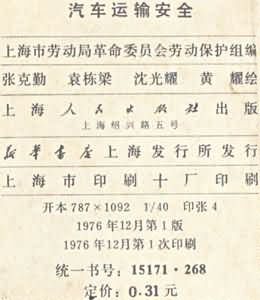 汽车运输安全
上海市劳动局革命委员会劳动保护组编
张克勤 袁栋梁 沈光耀 黄耀绘
上海人民出版社出版
上海绍兴路五号
新华书店上海发行所发行
上海市印刷十厂印刷
开本787×1092 1/40 印张4
1976年12月第1版
1976年12月第1次印刷
统一书号：15171·268
定价：0.31元